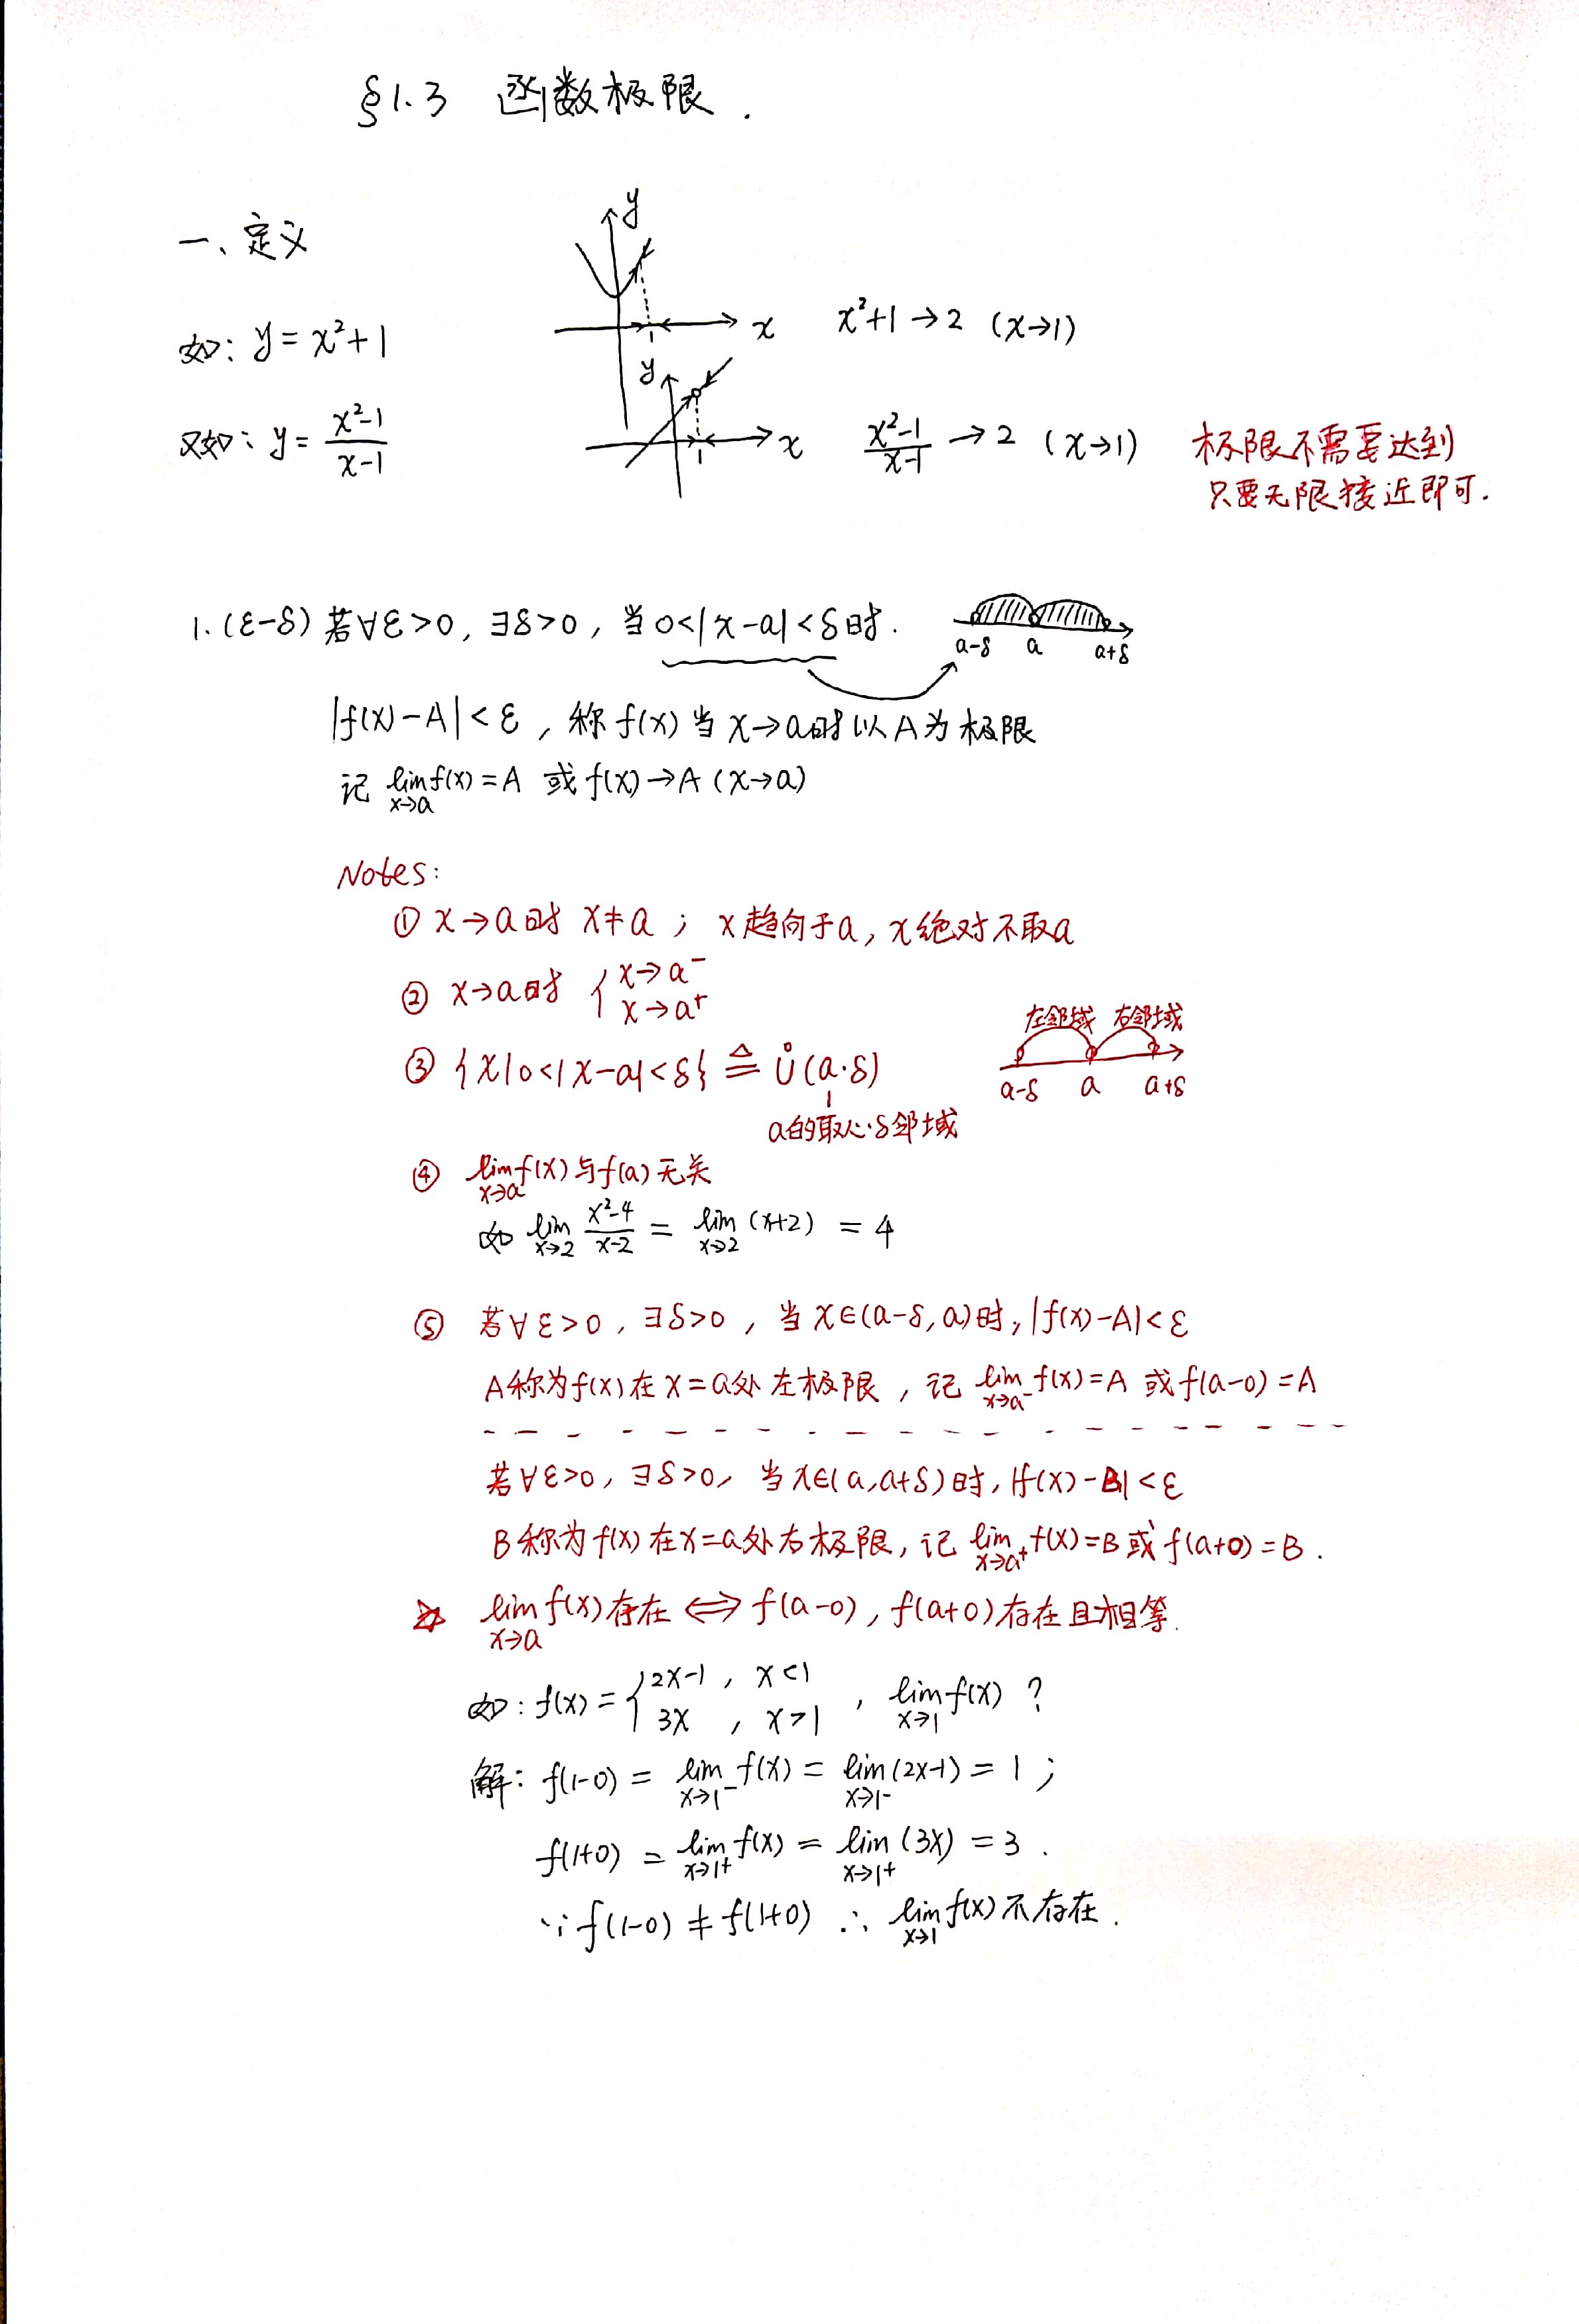 §1.3 函数极限.
一、定义
y
如: y = x²+1
x
1
x²+1 → 2 (x→1)
y
又如: y = (x²-1)/(x-1)
x
1
(x²-1)/(x-1) → 2 (x→1)
极限不需要达到
只要无限接近即可.
1. (ε-δ) 若∀ε>0, ∃δ>0, 当 0<|x-a|<δ时.
a-δ a a+δ
|f(x)-A|<ε, 称 f(x) 当 x→a时以A为极限
记 lim_{x→a} f(x) = A 或 f(x)→A (x→a)
Notes:
① x→a时 x≠a ; x趋向于a, x绝对不取a
② x→a时 { x→a⁻
x→a⁺
左邻域 右邻域
③ {x|0<|x-a|<δ} ≜ Ů(a·δ)
a-δ a a+δ
a的取心δ邻域
④ lim_{x→a} f(x) 与 f(a) 无关
如 lim_{x→2} (x²-4)/(x-2) = lim_{x→2} (x+2) = 4
⑤ 若∀ε>0, ∃δ>0, 当x∈(a-δ, a)时, |f(x)-A|<ε
A称为f(x)在x=a处左极限, 记 lim_{x→a⁻} f(x)=A 或 f(a-0)=A
若∀ε>0, ∃δ>0, 当x∈(a, a+δ)时, |f(x)-B|<ε
B称为f(x)在x=a处右极限, 记 lim_{x→a⁺} f(x)=B 或 f(a+0)=B.
☆ lim_{x→a} f(x)存在 ⟺ f(a-0), f(a+0)存在且相等.
如: f(x) = { 2x-1, x<1
3x, x>1 , lim_{x→1} f(x) ?
解: f(1-0) = lim_{x→1⁻} f(x) = lim_{x→1⁻} (2x-1) = 1 ;
f(1+0) = lim_{x→1⁺} f(x) = lim_{x→1⁺} (3x) = 3 .
∵ f(1-0) ≠ f(1+0) ∴ lim_{x→1} f(x)不存在.